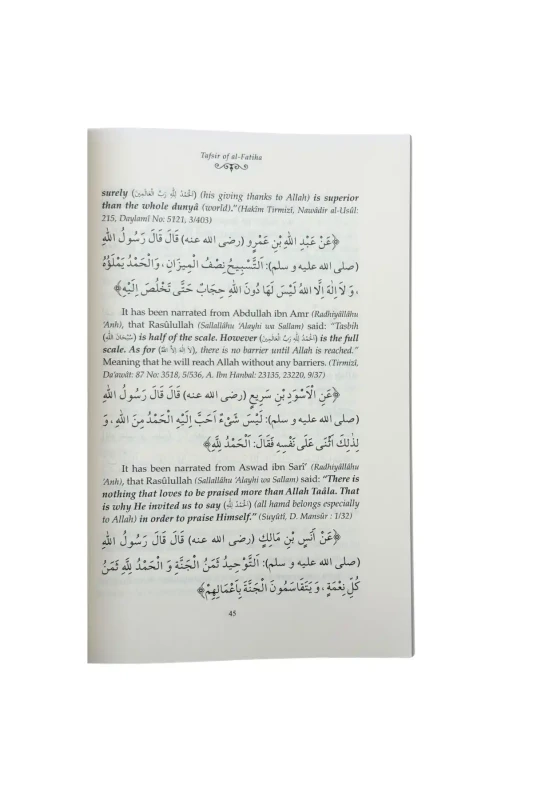 Tafsir of al-Fatiha
surely (اَلْحَمْدُ لِلّٰهِ رَبِّ الْعَالَمِينَ) (his giving thanks to Allah) is superior
than the whole dunyâ (world)." (Hakîm Tirmizî, Nawâdir al-Usûl:
215, Daylamî No: 5121, 3/403)
﴿عَنْ عَبْدِ اللّٰهِ بْنِ عَمْرٍو (رضى الله عنه) قَالَ قَالَ رَسُولُ اللّٰهِ
(صلى الله عليه و سلم): اَلتَّسْبِيحُ نِصْفُ الْمِيزَانِ ، وَالْحَمْدُ يَمْلَؤُهُ
، وَ لَا اِلٰهَ اِلَّا اللّٰهُ لَيْسَ لَهَا دُونَ اللّٰهِ حِجَابٌ حَتَّى تَخْلُصَ اِلَيْهِ﴾
It has been narrated from Abdullah ibn Amr (Radhiyâllâhu
'Anh), that Rasûlullah (Sallallâhu 'Alayhi wa Sallam) said: "Tasbîh
(سُبْحَانَ اللّٰهِ) is half of the scale. However (اَلْحَمْدُ لِلّٰهِ رَبِّ الْعَالَمِينَ) is the full
scale. As for (لَا اِلٰهَ اِلَّا اللّٰهُ), there is no barrier until Allah is reached."
Meaning that he will reach Allah without any barriers. (Tirmizî,
Da'awât: 87 No: 3518, 5/536, A. Ibn Hanbal: 23135, 23220, 9/37)
﴿عَنِ الْاَسْوَدِ بْنِ سَرِيعٍ (رضى الله عنه) قَالَ قَالَ رَسُولُ اللّٰهِ
(صلى الله عليه و سلم): لَيْسَ شَىْءٌ اَحَبَّ اِلَيْهِ الْحَمْدُ مِنَ اللّٰهِ ، وَ
لِذٰلِكَ اَثْنَى عَلَى نَفْسِهِ فَقَالَ: اَلْحَمْدُ لِلّٰهِ﴾
It has been narrated from Aswad ibn Sarî' (Radhiyâllâhu
'Anh), that Rasûlullah (Sallallâhu 'Alayhi wa Sallam) said: "There is
nothing that loves to be praised more than Allah Taâla. That
is why He invited us to say (اَلْحَمْدُ لِلّٰهِ) (all hamd belongs especially
to Allah) in order to praise Himself." (Suyûtî, D. Mansûr : 1/32)
﴿عَنْ اَنَسِ بْنِ مَالِكٍ (رضى الله عنه) قَالَ قَالَ رَسُولُ اللّٰهِ
(صلى الله عليه و سلم): اَلتَّوْحِيدُ ثَمَنُ الْجَنَّةِ وَ الْحَمْدُ لِلّٰهِ ثَمَنُ
كُلِّ نِعْمَةٍ ، وَ يَتَقَاسَمُونَ الْجَنَّةَ بِاَعْمَالِهِمْ﴾
45